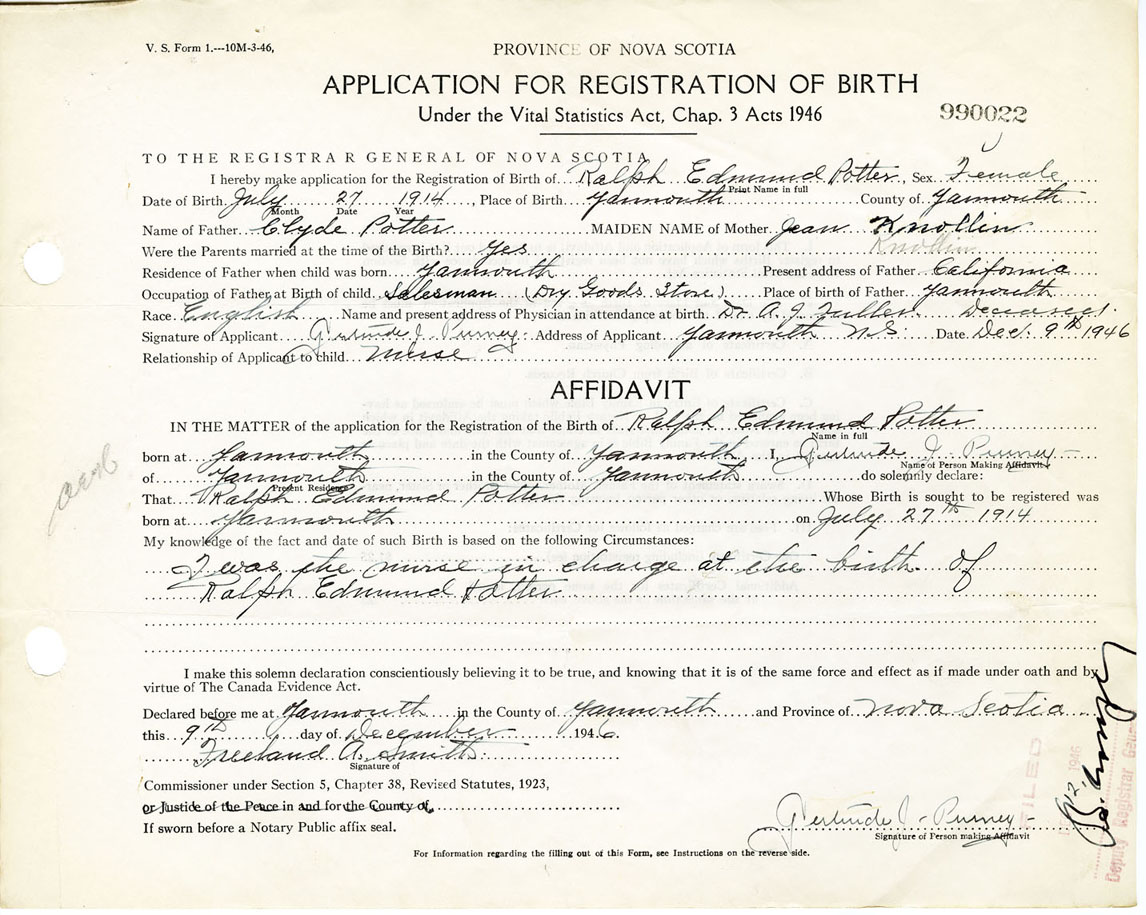 V. S. Form 1.---10M-3-46,
PROVINCE OF NOVA SCOTIA
APPLICATION FOR REGISTRATION OF BIRTH
Under the Vital Statistics Act, Chap. 3 Acts 1946
990022
TO THE REGISTRAR GENERAL OF NOVA SCOTIA
I hereby make application for the Registration of Birth of Ralph Edmund Potter, Sex Female
Print Name in full
Date of Birth July 27 1914, Place of Birth Yarmouth County of Yarmouth
Month Date Year
Name of Father Clyde Potter MAIDEN NAME of Mother Jean Knollin
Knollin
Were the Parents married at the time of the Birth? Yes
Residence of Father when child was born Yarmouth Present address of Father California
Occupation of Father at Birth of child Salesman (Dry Goods Store) Place of birth of Father Yarmouth
Race English Name and present address of Physician in attendance at birth Dr. A. J. Fuller Deceased.
Signature of Applicant Gertrude J. Purney Address of Applicant Yarmouth N.S. Date Dec. 9th 1946
Relationship of Applicant to child Nurse
AFFIDAVIT
IN THE MATTER of the application for the Registration of the Birth of Ralph Edmund Potter
Name in full
born at Yarmouth in the County of Yarmouth I, Gertrude J. Purney
Name of Person Making Affidavit
of Yarmouth in the County of Yarmouth do solemnly declare:
Present Residence
That Ralph Edmund Potter Whose Birth is sought to be registered was
born at Yarmouth on July 27th 1914
My knowledge of the fact and date of such Birth is based on the following Circumstances:
I was the nurse in charge at the birth of
Ralph Edmund Potter
I make this solemn declaration conscientiously believing it to be true, and knowing that it is of the same force and effect as if made under oath and by
virtue of The Canada Evidence Act.
Declared before me at Yarmouth in the County of Yarmouth and Province of Nova Scotia
this 9th day of December 1946.
Freeland A. Smith
Signature of
Commissioner under Section 5, Chapter 38, Revised Statutes, 1923,
or Justice of the Peace in and for the County of
If sworn before a Notary Public affix seal.
Gertrude J. Purney
Signature of Person making Affidavit
For Information regarding the filling out of this Form, see Instructions on the reverse side.
FILED
1946
Deputy Registrar General